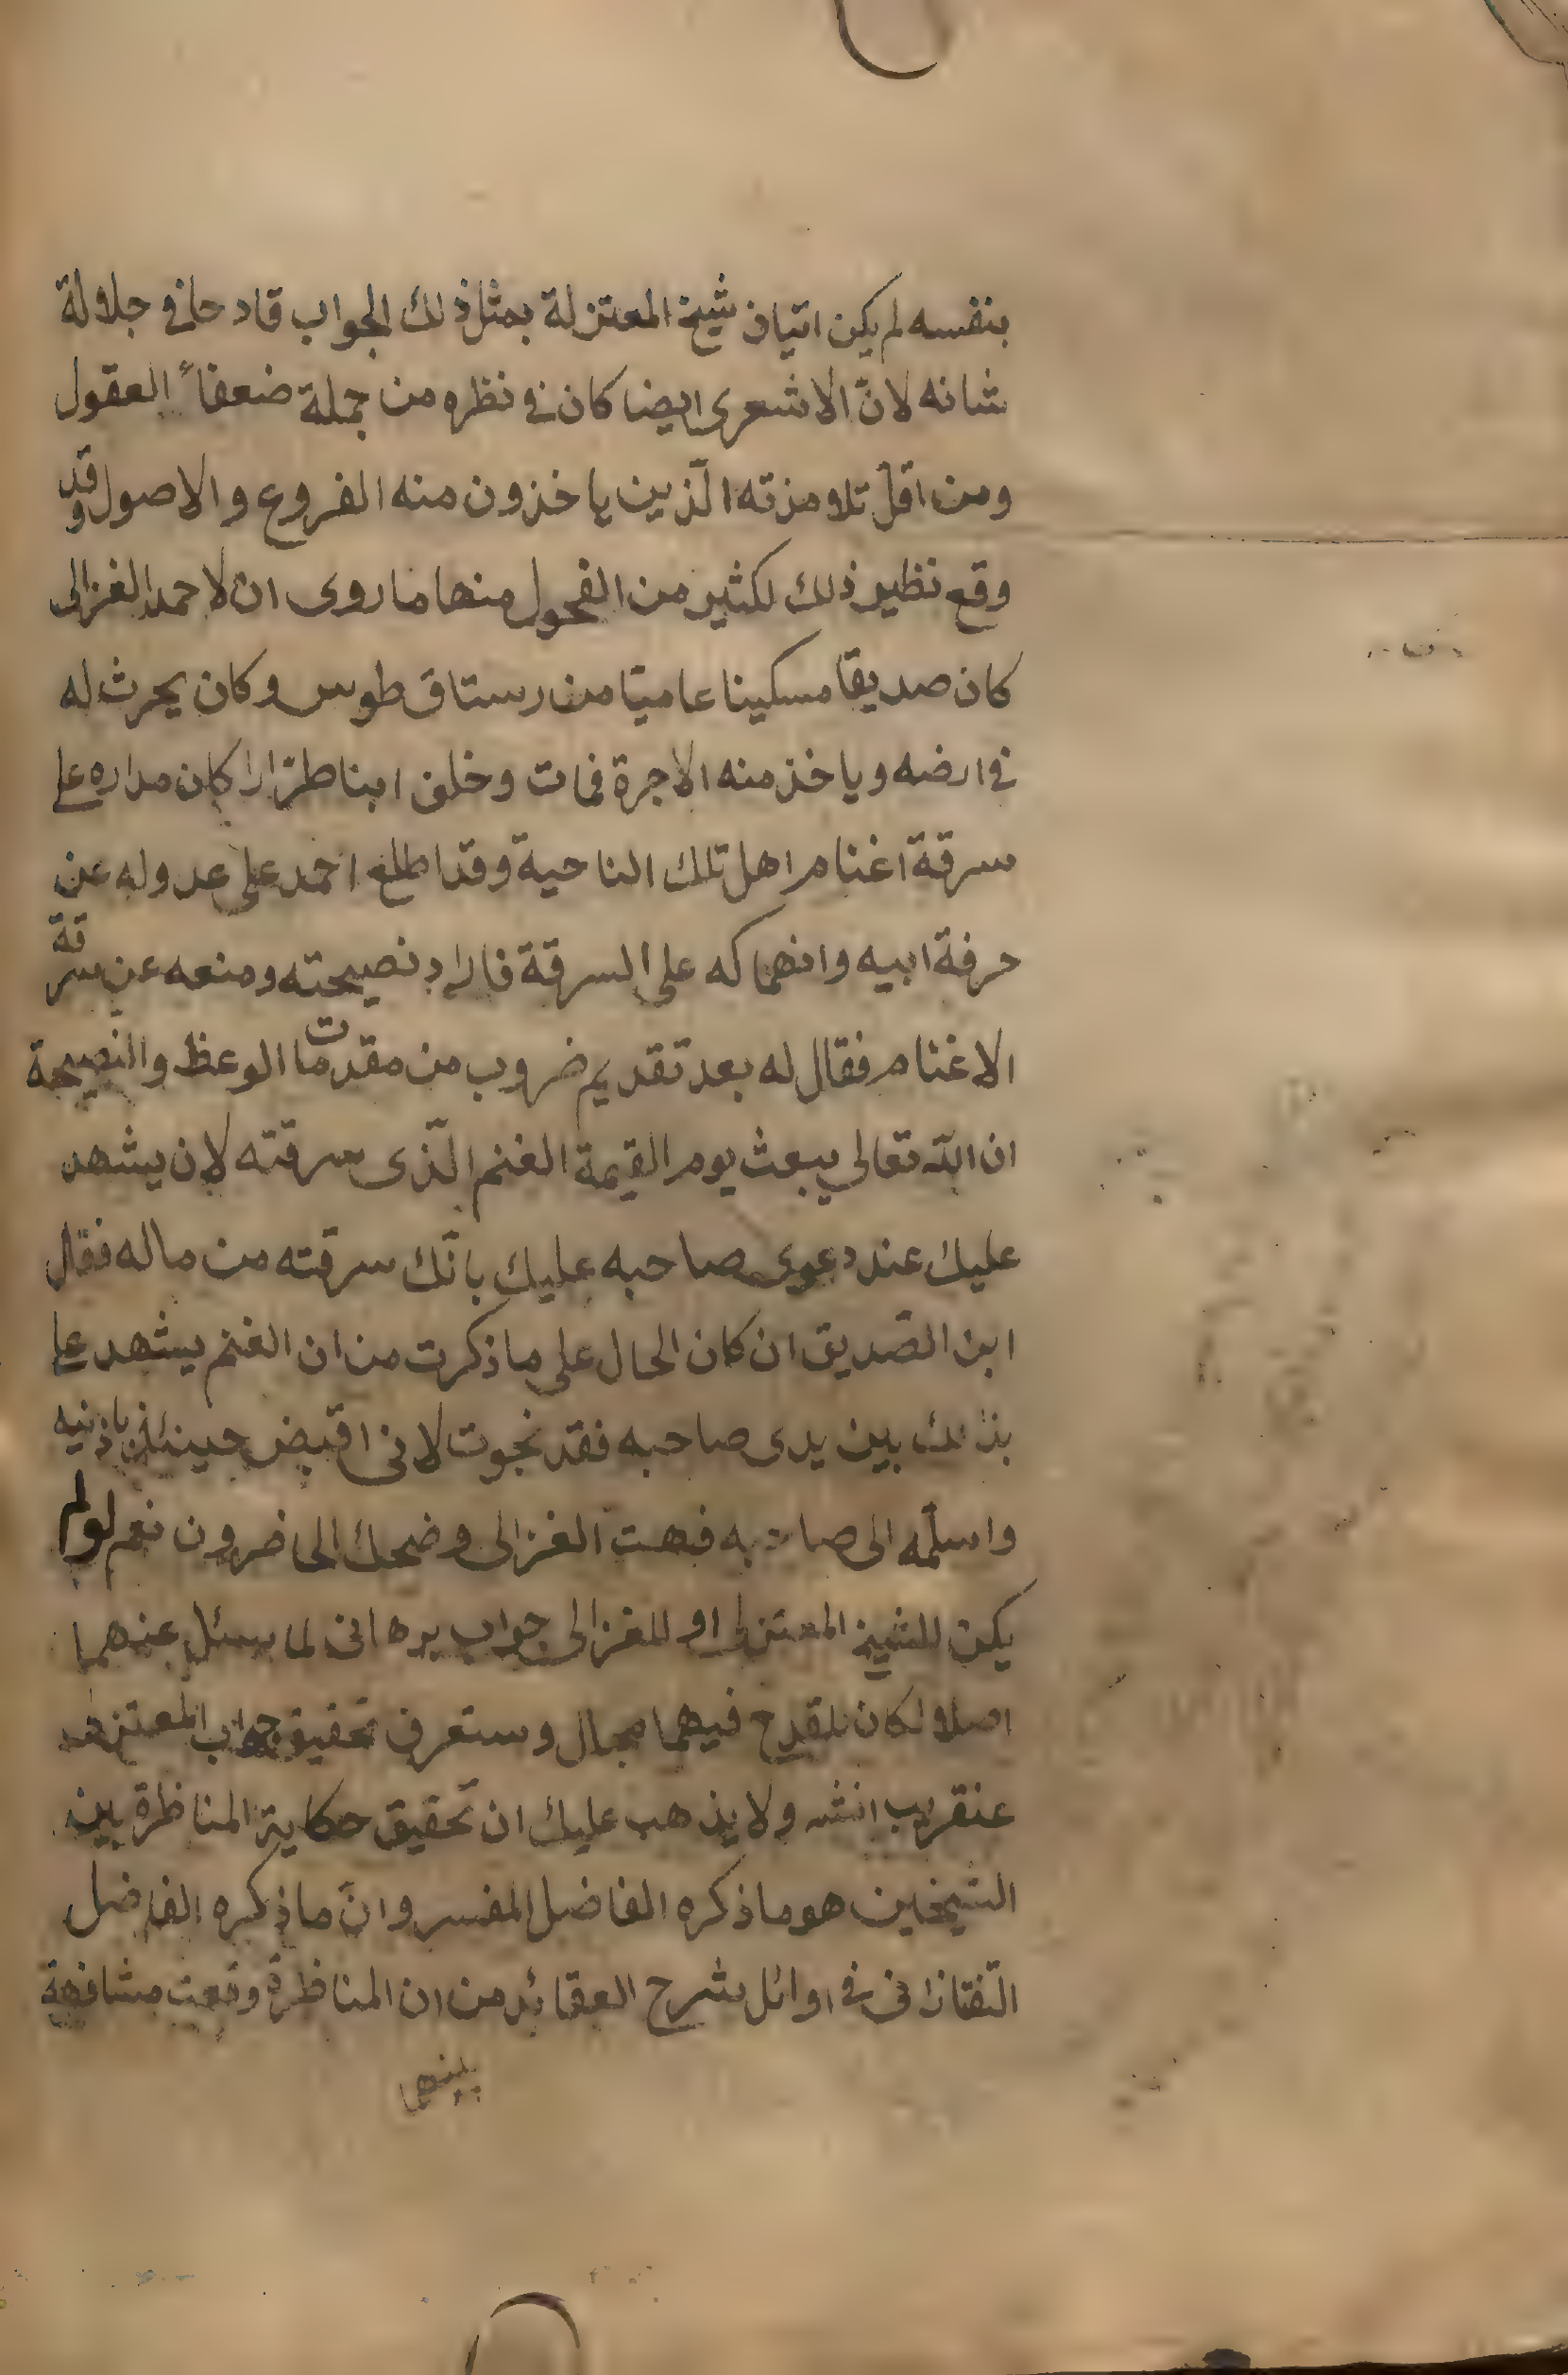 بنفسه لم يكن اتيان شيخ المعتزلة بمثل ذلك الجواب قادحا في جلالة
شانه لانّ الاشعرى ايضا كان في نظره من جملة ضعفاء العقول
ومن اقلّ تلامذته الّذين ياخذون منه الفروع والاصول وقد
وقع نظير ذلك لكثير من الفحول منها ما روى ان لاحمد الغزالى
كان صديقا مسكينا عاميّا من رستاق طوس وكان يحرث له
في ارضه وياخذ منه الاجرة فمات وخلف ابنا طرّارا كان مداره على
سرقة اغنام اهل تلك الناحية وقد اطلع احمد على عدوله عن
حرفة ابيه وانهماكه على السرقة فاراد نصيحته ومنعه عن سرقة
الاغنام فقال له بعد تقديم ضروب من مقدمات الوعظ والنصيحة
ان الله تعالى يبعث يوم القيمة الغنم الّذى سرقته لان يشهد
عليك عند دعوى صاحبه عليك بانّك سرقته من ماله فقال
ابن الصّديق ان كان الحال على ما ذكرت من ان الغنم يشهد على
بذلك بين يدى صاحبه فقد نجوت لانى اقبض حينئذ باذنيه
واسلّمه الى صاحبه فبهت الغزالى وضحك الحاضرون نعم لو لم
يكن للشيخ المعتزلى او للغزالى جواب برهانى لما يسئل عنهما
اصلا لكان للقدح فيهما مجال وستعرف تحقيق جواب المعتزلى
عنقريب انشه ولا يذهب عليك ان تحقيق حكاية المناظرة بين
الشيخين هو ما ذكره الفاضل المفسر وانّ ما ذكره الفاضل
التفتازانى في اوائل شرح العقائد من ان المناظرة وقعت مشافهة
بينهما